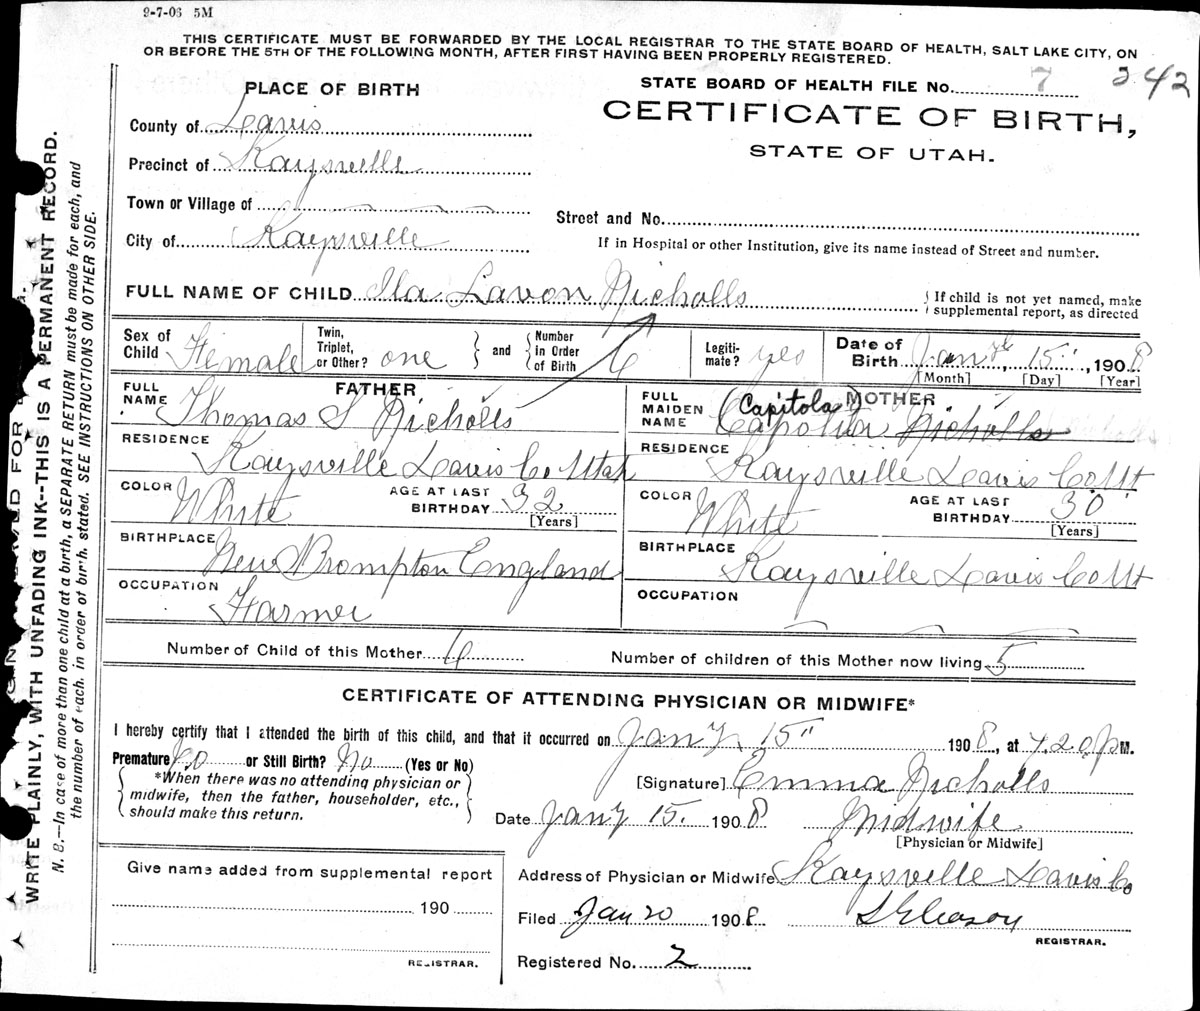 9-7-06 5M
THIS CERTIFICATE MUST BE FORWARDED BY THE LOCAL REGISTRAR TO THE STATE BOARD OF HEALTH, SALT LAKE CITY, ON
OR BEFORE THE 5TH OF THE FOLLOWING MONTH, AFTER FIRST HAVING BEEN PROPERLY REGISTERED.
STATE BOARD OF HEALTH FILE No. 7 242
CERTIFICATE OF BIRTH,
STATE OF UTAH.
PLACE OF BIRTH
County of Davis
Precinct of Kaysville
Town or Village of
City of Kaysville
Street and No.
If in Hospital or other Institution, give its name instead of Street and number.
FULL NAME OF CHILD Ila Lavon Nicholls
If child is not yet named, make
supplemental report, as directed
Sex of Child Female
Twin, Triplet, or Other? one
and Number in Order of Birth 6
Legiti-mate? yes
Date of Birth Jany 15, 1908
[Month] [Day] [Year]
FATHER
FULL NAME Thomas S Nicholls
RESIDENCE Kaysville Davis Co Utah
COLOR White
AGE AT LAST BIRTHDAY 32
[Years]
BIRTHPLACE New Brompton England
OCCUPATION Farmer
MOTHER
FULL MAIDEN NAME Capitola Nicholls
RESIDENCE Kaysville Davis Co Ut
COLOR White
AGE AT LAST BIRTHDAY 30
[Years]
BIRTHPLACE Kaysville Davis Co Ut
OCCUPATION
Number of Child of this Mother 6
Number of children of this Mother now living 5
CERTIFICATE OF ATTENDING PHYSICIAN OR MIDWIFE*
I hereby certify that I attended the birth of this child, and that it occurred on Jany 15 1908, at 7.20 P M.
Premature No or Still Birth? No (Yes or No)
*When there was no attending physician or
midwife, then the father, householder, etc.,
should make this return.
[Signature] Emma Nicholls
Date Jany 15. 1908 Midwife
[Physician or Midwife]
Give name added from supplemental report
190
REGISTRAR.
Address of Physician or Midwife Kaysville Davis Co
Filed Jan 20 1908
REGISTRAR.
Registered No. 2
WRITE PLAINLY, WITH UNFADING INK--THIS IS A PERMANENT RECORD.
N. B.—In case of more than one child at a birth, a SEPARATE RETURN must be made for each, and
the number of each, in order of birth, stated. SEE INSTRUCTIONS ON OTHER SIDE.